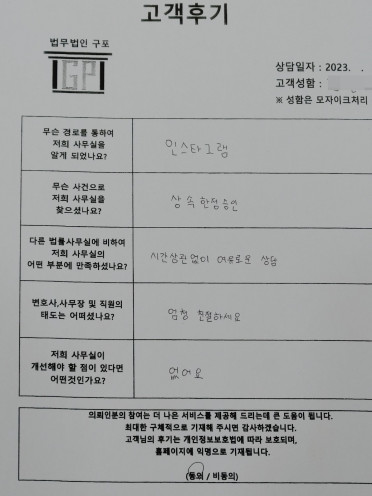 고객후기
법무법인 구포
GP
상담일자 : 2023. .
고객성함 :
※ 성함은 모자이크처리
무슨 경로를 통하여
저희 사무실을
알게 되었나요?
인스타그램
무슨 사건으로
저희 사무실을
찾으셨나요?
상속한정승인
다른 법률사무실에 비하여
저희 사무실의
어떤 부분에 만족하셨나요?
시간상관없이 여유로운 상담
변호사,사무장 및 직원의
태도는 어떠셨나요?
엄청 친절하세요
저희 사무실이
개선해야 할 점이 있다면
어떤것인가요?
없어요
의뢰인분의 참여는 더 나은 서비스를 제공해 드리는데 큰 도움이 됩니다.
최대한 구체적으로 기재해 주시면 감사하겠습니다.
고객님의 후기는 개인정보보호법에 따라 보호되며,
홈페이지에 익명으로 기재됩니다.
(동의 / 비동의)